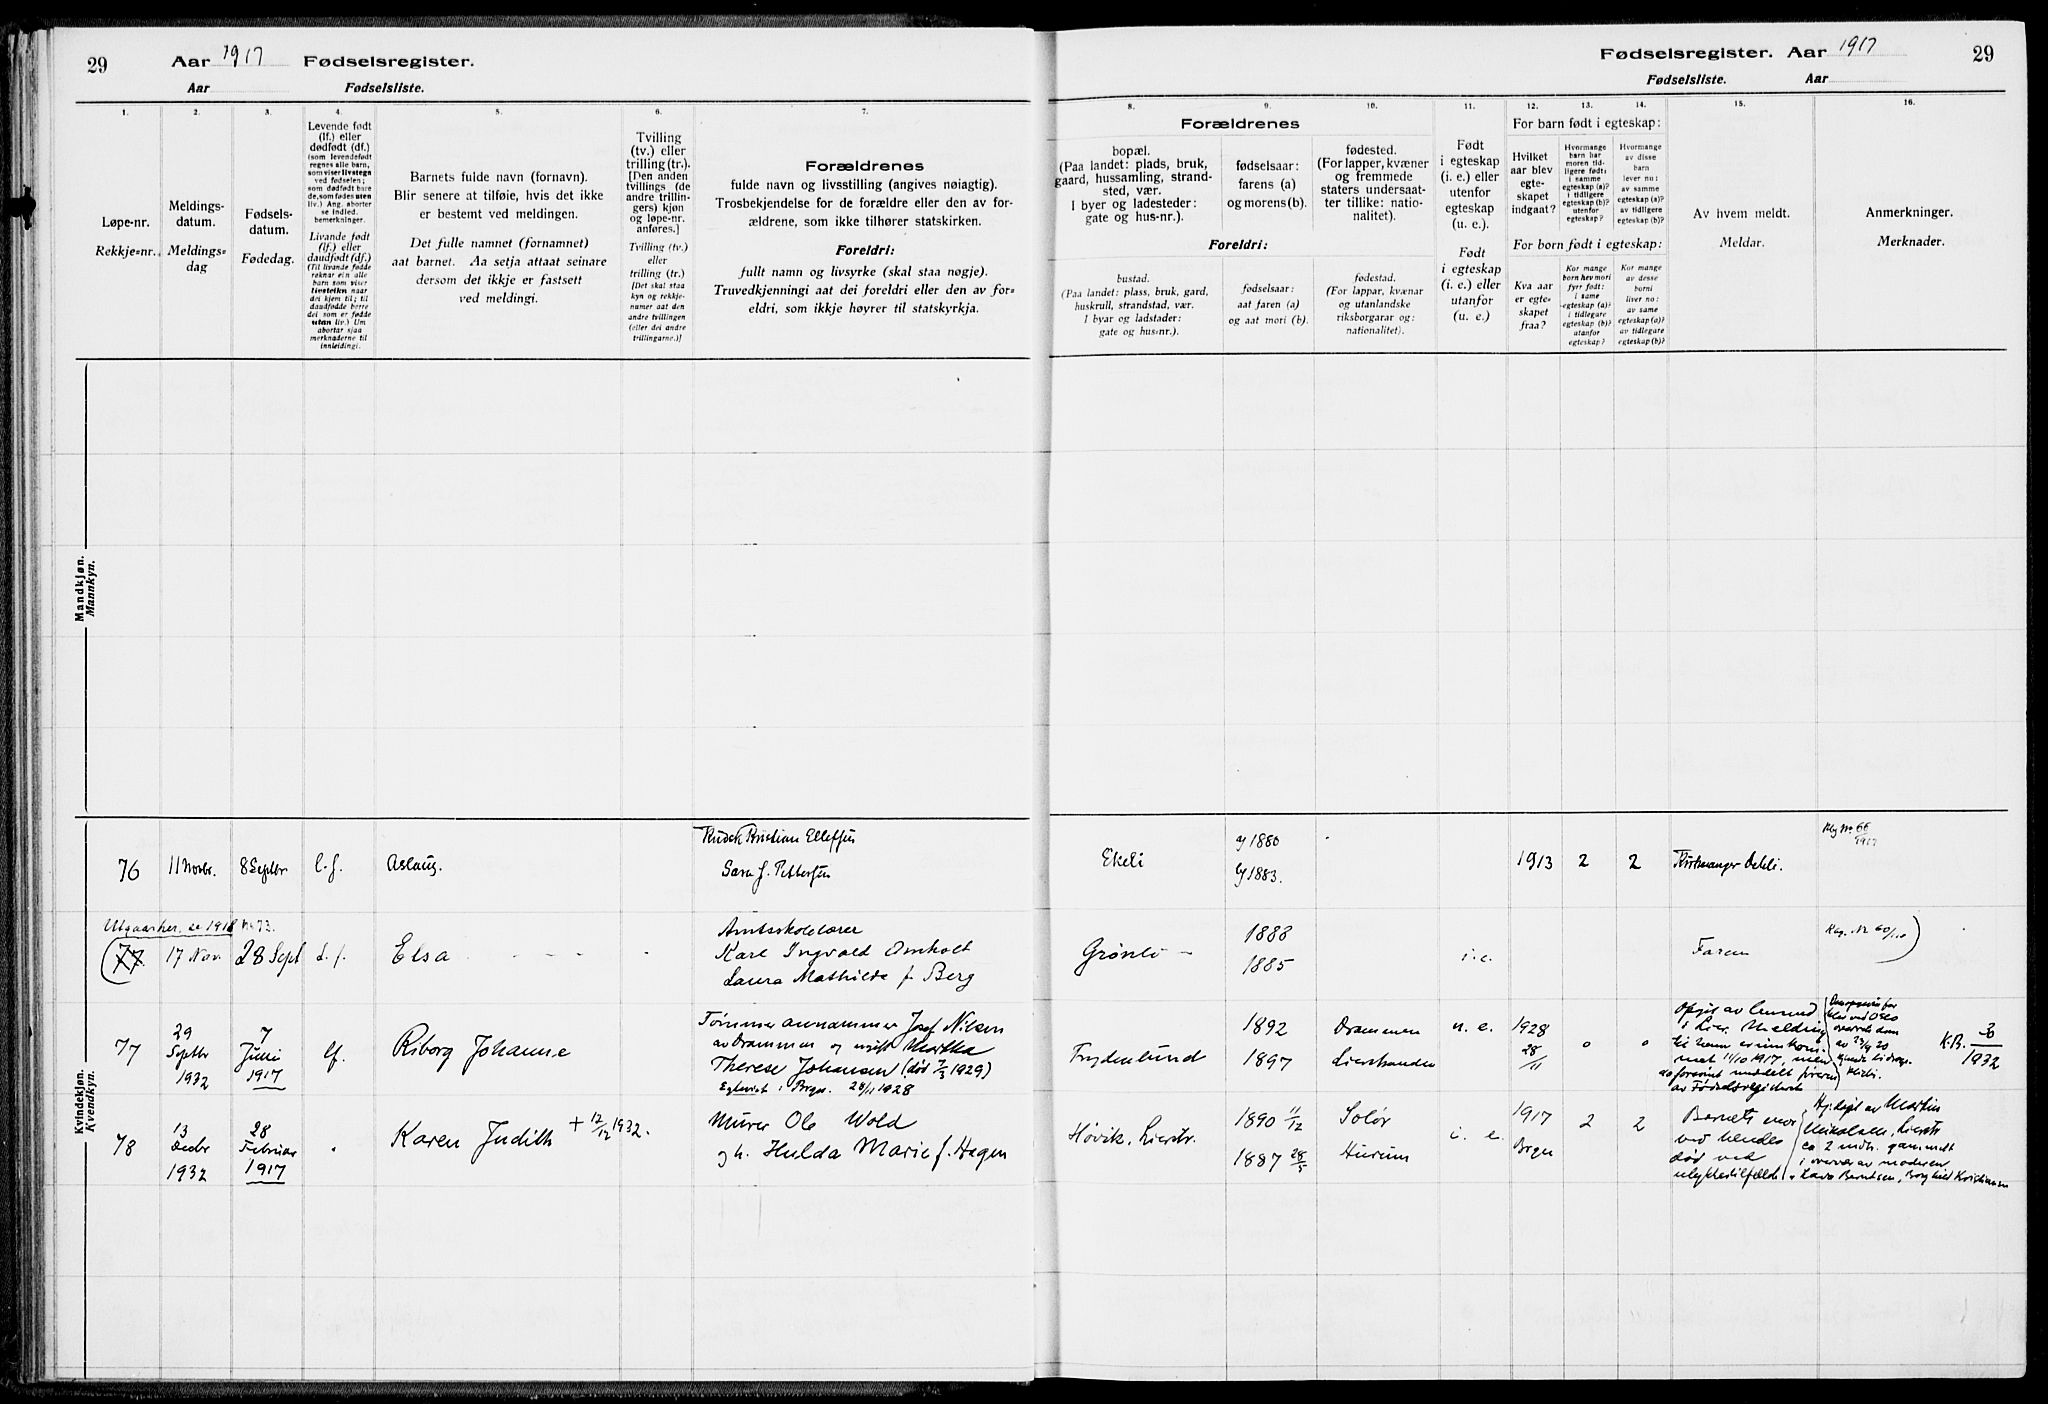 29
Aar 1917 Fødselsregister.
Aar Fødselsliste.
1.
2.
3.
4.
5.
6.
7.
Løpe-nr.
Rekkje=nr.
Meldings-
datum.
Meldings=
dag
Fødsels-
datum.
Fødedag.
Levende født
(lf.) eller
dødfødt (df.)
(som levendefødt
regnes alle barn,
som viser livstegn
ved fødselen;
som dødfødt bare
de, som fødes uten
liv.) Ang. aborter
se indled.
bemerkninger.
Livande født
(lf.) eller
daudfødt (df.)
(Til livande fødde
reknar ein alle
barn som viser
livsteikn naar
dei kjem til; til
daudfødde berre
dei som er fødde
utan liv.) Um
abortar sjaa
merknaderne til
innleidingi.
Barnets fulde navn (fornavn).
Blir senere at tilføie, hvis det ikke
er bestemt ved meldingen.
Det fulle namnet (fornamnet)
aat barnet. Aa setja attaat seinare
dersom det ikkje er fastsett
ved meldingi.
Tvilling
(tv.) eller
trilling (tr.).
[Den anden
tvillings (de
andre trillin-
gers) kjøn
og løpe-nr.
anføres.]
Tvilling (tv.)
eller
trilling (tr.)
[Det skal staa
kyn og rekkje-
numer aat den
andre tvillingen
(eller dei andre
trillingarne.)]
Forældrenes
fulde navn og livsstilling (angives nøiagtig).
Trosbekjendelse for de forældre eller den av for-
ældrene, som ikke tilhører statskirken.
Foreldri:
fullt namn og livsyrke (skal staa nøgje).
Truvedkjenningi aat dei foreldri eller den av for=
eldri, som ikkje høyrer til statskyrkja.
Mandkjøn.
Mannkyn.
Kvindekjøn.
Kvendkyn.
76
11 Novbr.
8 Septbr
l.f.
Aslaug.
Kristian Ellefsen
Sara f. Pettersen
No 73.
77
17 Nov.
28 Sept
Elsa
Amtsskolelærer
Karl Ingvald Omholt
Laura Mathilde f. Berg
77
29
Septbr
1932
7
Juni
1917
lf.
Riborg Johanne
Tømmerannammer Josef Nilsen
av Drammen og Martha
Therese Johansen (død 7/3 1929)
28/11 1928
78
13
Decbr
1932
28
Februar
1917
Karen Judith + 12/12 1932.
Murer Ole Wold
og h. Hulda Marie f. Hagen
Fødselsregister. Aar 1917
29
Fødselsliste. Aar
8.
9.
10.
11.
12.
13.
14.
15.
16.
Forældrenes
bopæl.
(Paa landet: plads, bruk,
gaard, hussamling, strand-
sted, vær.
I byer og ladesteder:
gate og hus-nr.).
fødselsaar:
farens (a)
og morens (b).
fødested.
(For lapper, kvæner
og fremmede
staters undersaat-
ter tillike: natio-
nalitet).
Foreldri:
bustad.
(Paa landet: plass, bruk, gard,
huskrull, strandstad, vær.
I byar og ladstader:
gate og hus=nr.).
fødselsaar:
aat faren (a)
og aat mori (b).
fødestad.
(For lappar, kvænar
og utanlandske
riksborgarar og:
nationalitet).
Født
i egteskap
(i. e.) eller
utenfor
egteskap
(u. e.).
Født
i egteskap
(i. e.) eller
utanfor
(u. e.)
For barn født i egteskap:
Hvilket
aar blev
egte-
skapet
indgaat?
Hvormange
barn har
moren tid-
ligere født:
i samme
egteskap (a)?
i tidligere
egteskap (b)?
utenfor
egteskap?
Hvormange
av disse
barn
lever nu:
av samme
egteskap (a)?
av tidligere
egteskap (b)?
For born født i egteskap:
Kva aar
er egte-
skapet
fraa?
Kor mange
born hev mori
fyrr født:
i same
egteskap (a)?
i tidlegare
egteskap (b)?
utanfor
egteskap?
Kor mange
av desse
borni
liver no:
av same
egteskap (a)?
av tidlegare
egteskap (b)?
Av hvem meldt.
Meldar.
Anmerkninger.
Merknader.
Ekeli
1880
1883.
1913
2
2
No 66
1917
Grønlo
1888
1885
i. e.
Faren
Frydenlund
1892
1897
Drammen
Lierstranden
u. e.
1928
28/11
K.B. 30/1932
av Fødselsregisteret
Høvik, Lierstr.
1890 11/12
1887 28/5
Solør
Hurum
i. e.
1917
2
2
Barnets mor
ved hendes
død ved
ulykkestilfælde
av Martin
Nikolsen, Lierstr
ca 2 mdr. gammelt
i overvær av moderen
Borghild Kristiansen